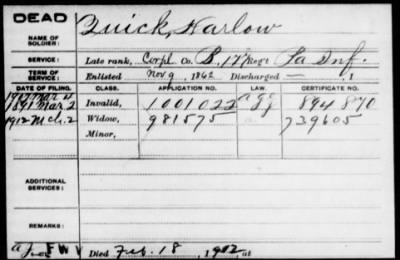 DEAD
NAME OF SOLDIER: Quick, Harlow
SERVICE: Late rank, Corpl Co. B, 177 Regt Pa Inf.
TERM OF SERVICE: Enlisted Nov 9, 1862 Discharged — , 1
DATE OF FILING. CLASS. APPLICATION NO. LAW. CERTIFICATE NO.
1891 Mar 2 Invalid, 1001022 894870
1912 Mch. 2 Widow, 981575 739605
Minor,
ADDITIONAL SERVICES:
REMARKS:
FWV Died Feb. 18, 1912, at